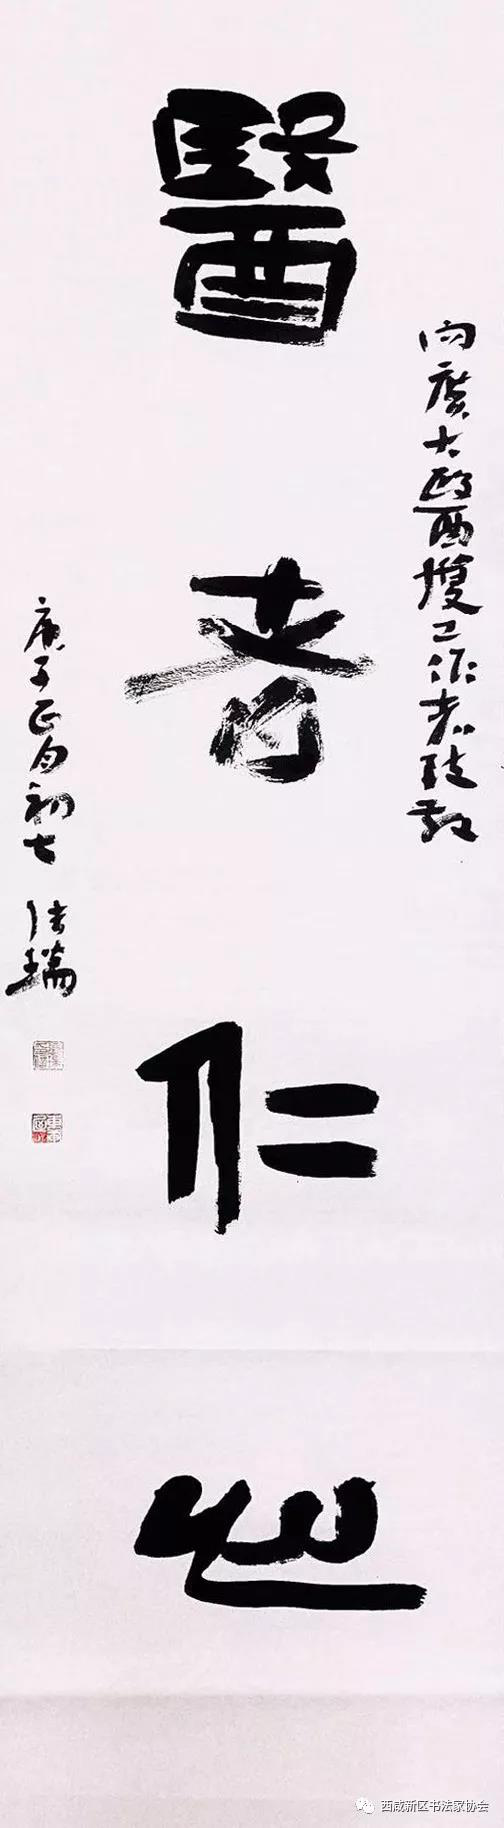 向廣大醫護工作者致敬
醫者仁心
庚子正月初七
西咸新区书法家协会